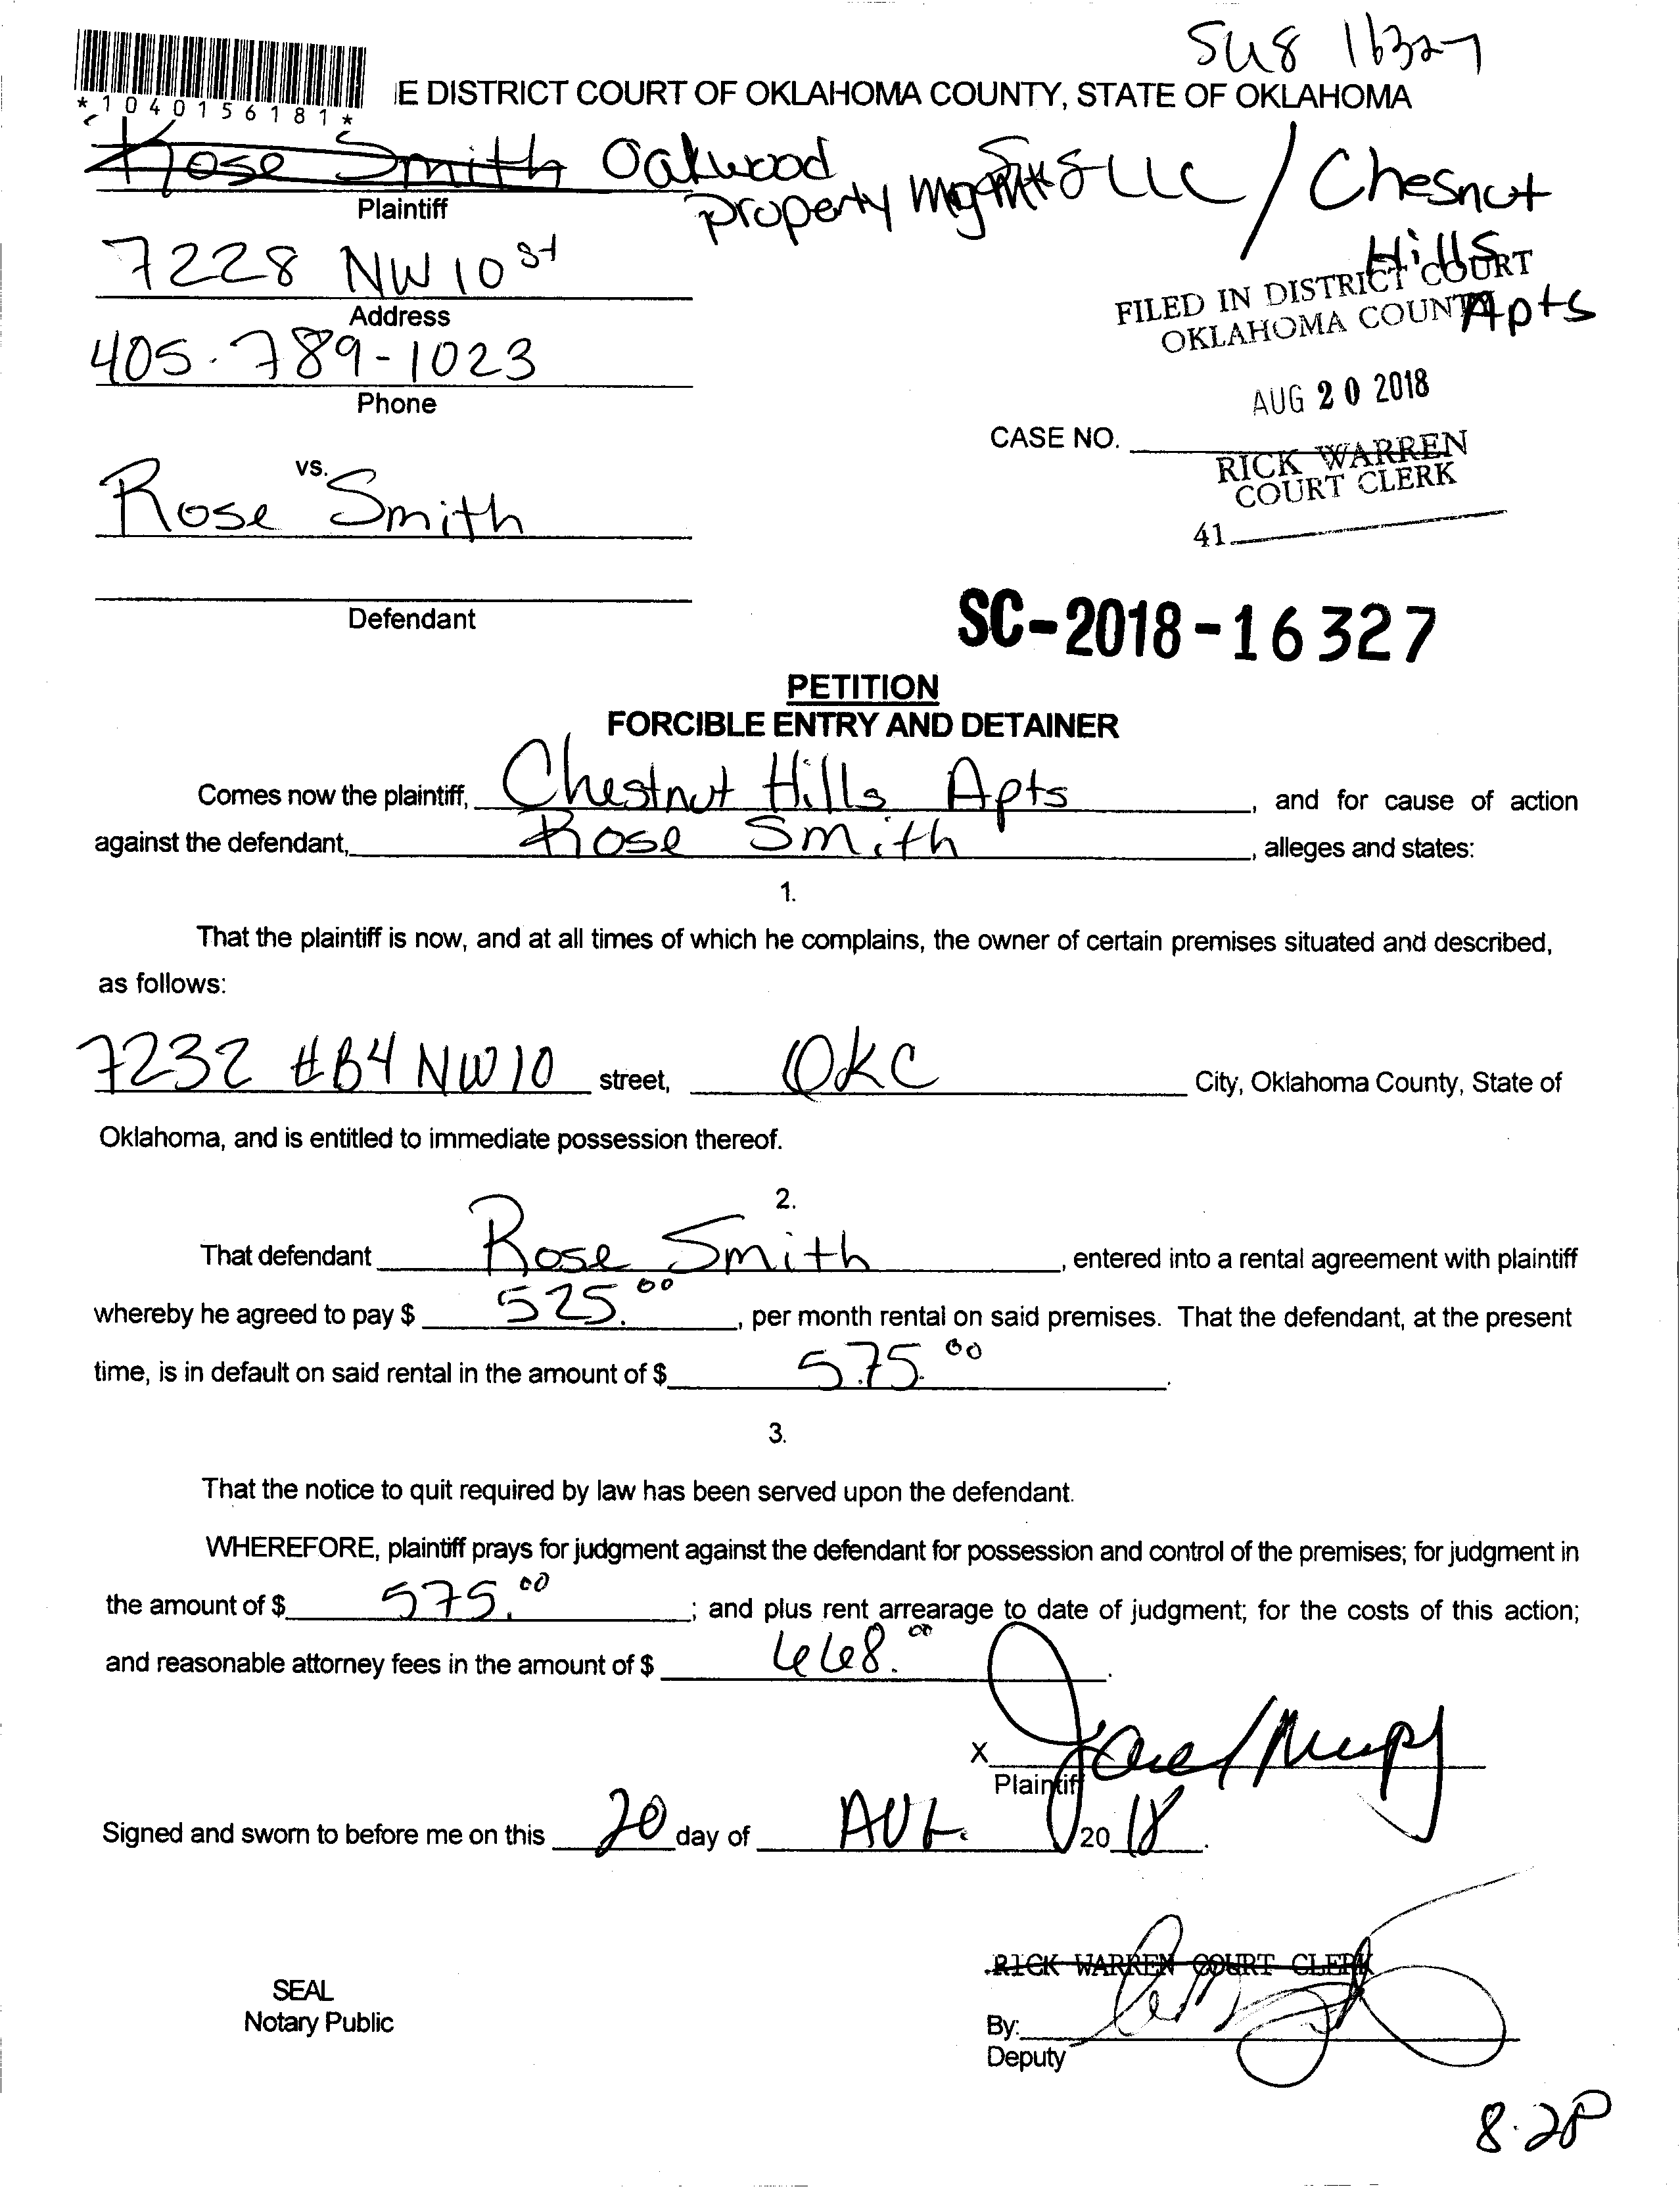 SC8 16327
*1040156181*
E DISTRICT COURT OF OKLAHOMA COUNTY, STATE OF OKLAHOMA
Rose Smith Oakwood
Property Mgmt LLC / Chesnut
Hills
Apts
Plaintiff
7228 NW 10 st
Address
405.789-1023
Phone
FILED IN DISTRICT COURT
OKLAHOMA COUNTY
AUG 20 2018
CASE NO.
RICK WARREN
COURT CLERK
41
vs.
Rose Smith
Defendant
SC-2018-16327
PETITION
FORCIBLE ENTRY AND DETAINER
Comes now the plaintiff, Chestnut Hills Apts, and for cause of action
against the defendant, Rose Smith, alleges and states:
1.
That the plaintiff is now, and at all times of which he complains, the owner of certain premises situated and described,
as follows:
7232 #B4 NW 10 street, OKC City, Oklahoma County, State of
Oklahoma, and is entitled to immediate possession thereof.
2.
That defendant Rose Smith, entered into a rental agreement with plaintiff
whereby he agreed to pay $ 525.00, per month rental on said premises. That the defendant, at the present
time, is in default on said rental in the amount of $ 575.00.
3.
That the notice to quit required by law has been served upon the defendant.
WHEREFORE, plaintiff prays for judgment against the defendant for possession and control of the premises; for judgment in
the amount of $ 575.00; and plus rent arrearage to date of judgment; for the costs of this action;
and reasonable attorney fees in the amount of $ 668.00.
X
Plaintiff
Signed and sworn to before me on this 20 day of AUG. 2018.
RICK WARREN COURT CLERK
SEAL
Notary Public
By:
Deputy
8.28